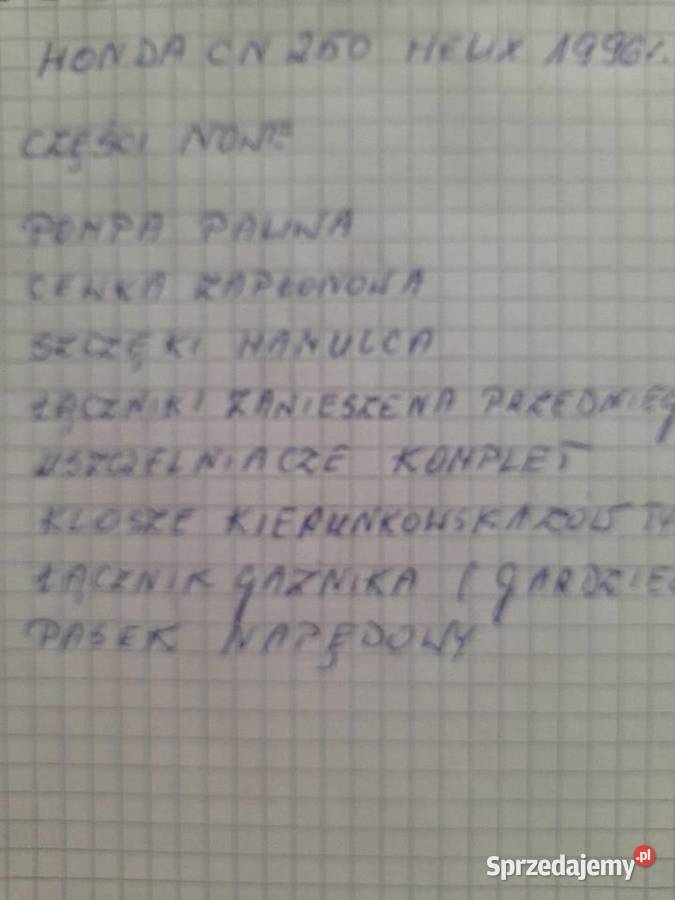 HONDA CN 250 HELIX 1996r.
CZĘŚCI NOWE
POMPA PALIWA
CEWKA ZAPŁONOWA
SZCZĘKI HAMULCA
ŁĄCZNIKI ZAWIESZENA PRZEDNIEG
USZCZELNIACZE KOMPLET
KLOSZE KIERUNKOWSKAZÓW TY
ŁĄCZNIK GAZNIKA (GARDZIE
PASEK NAPĘDOWY
Sprzedajemy.pl